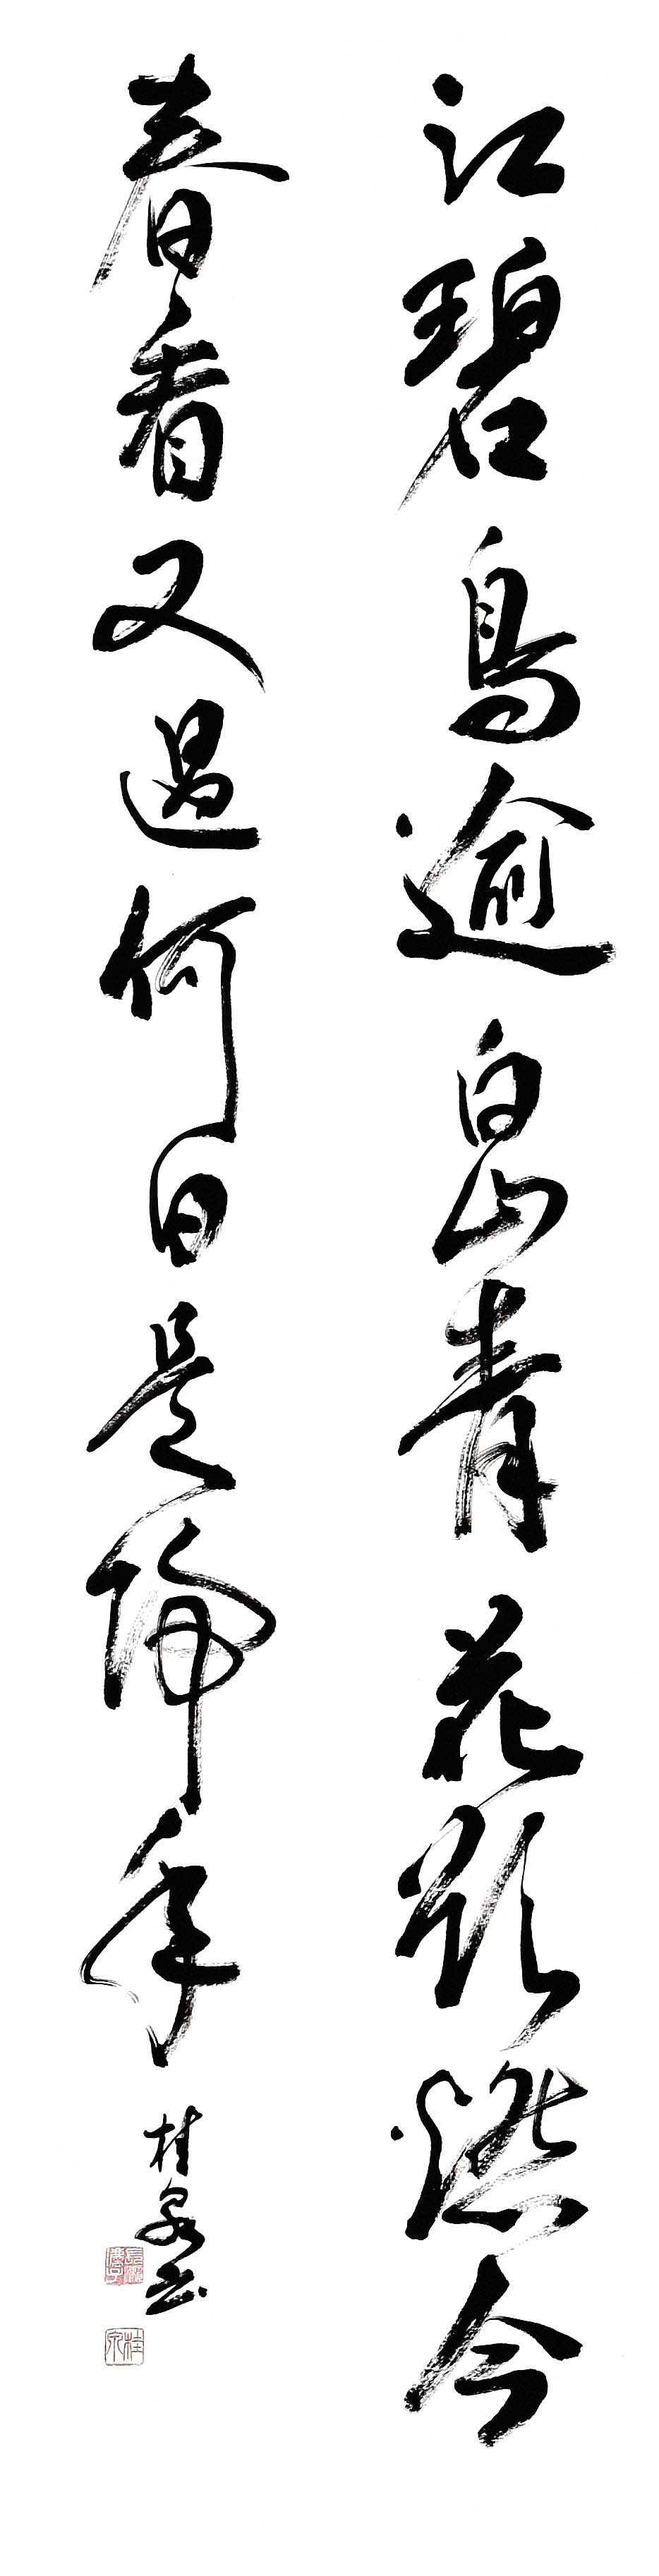 江碧鳥逾白山青花欲燃今
春看又過何日是歸年
桂泉书